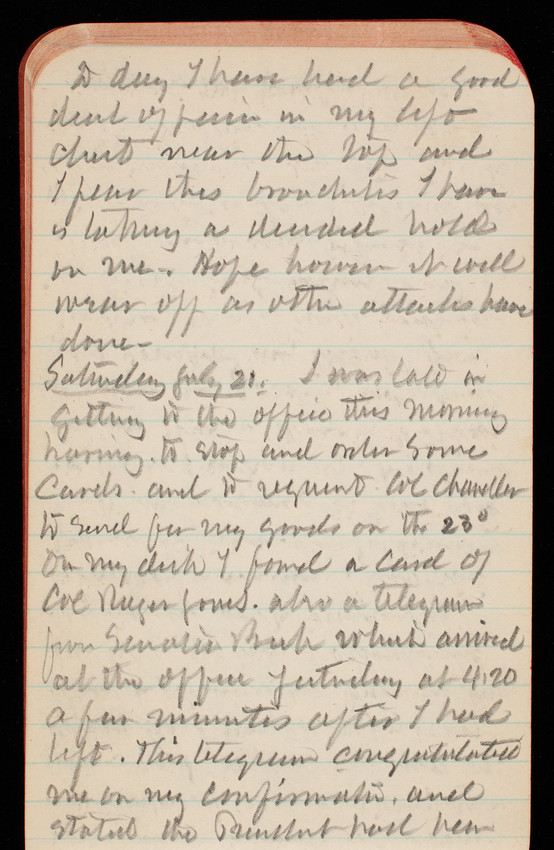 To day I have had a good
deal of pain in my left
chest near the top and
I fear this bronchitis I have
is taking a decided hold
on me. Hope however it will
wear off as other attacks have
done-
Saturday July 21. I was late in
getting to the office this morning
having to stop and order some
cards and to request Col Chandler
to send for my goods on the 23d
On my desk I found a card of
Col Roger Jones. also a telegram
from Senator which arrived
at the office yesterday at 4:20
a few minutes after I had
left. This telegram congratulated
me on my confirmation. and
stated the President had been